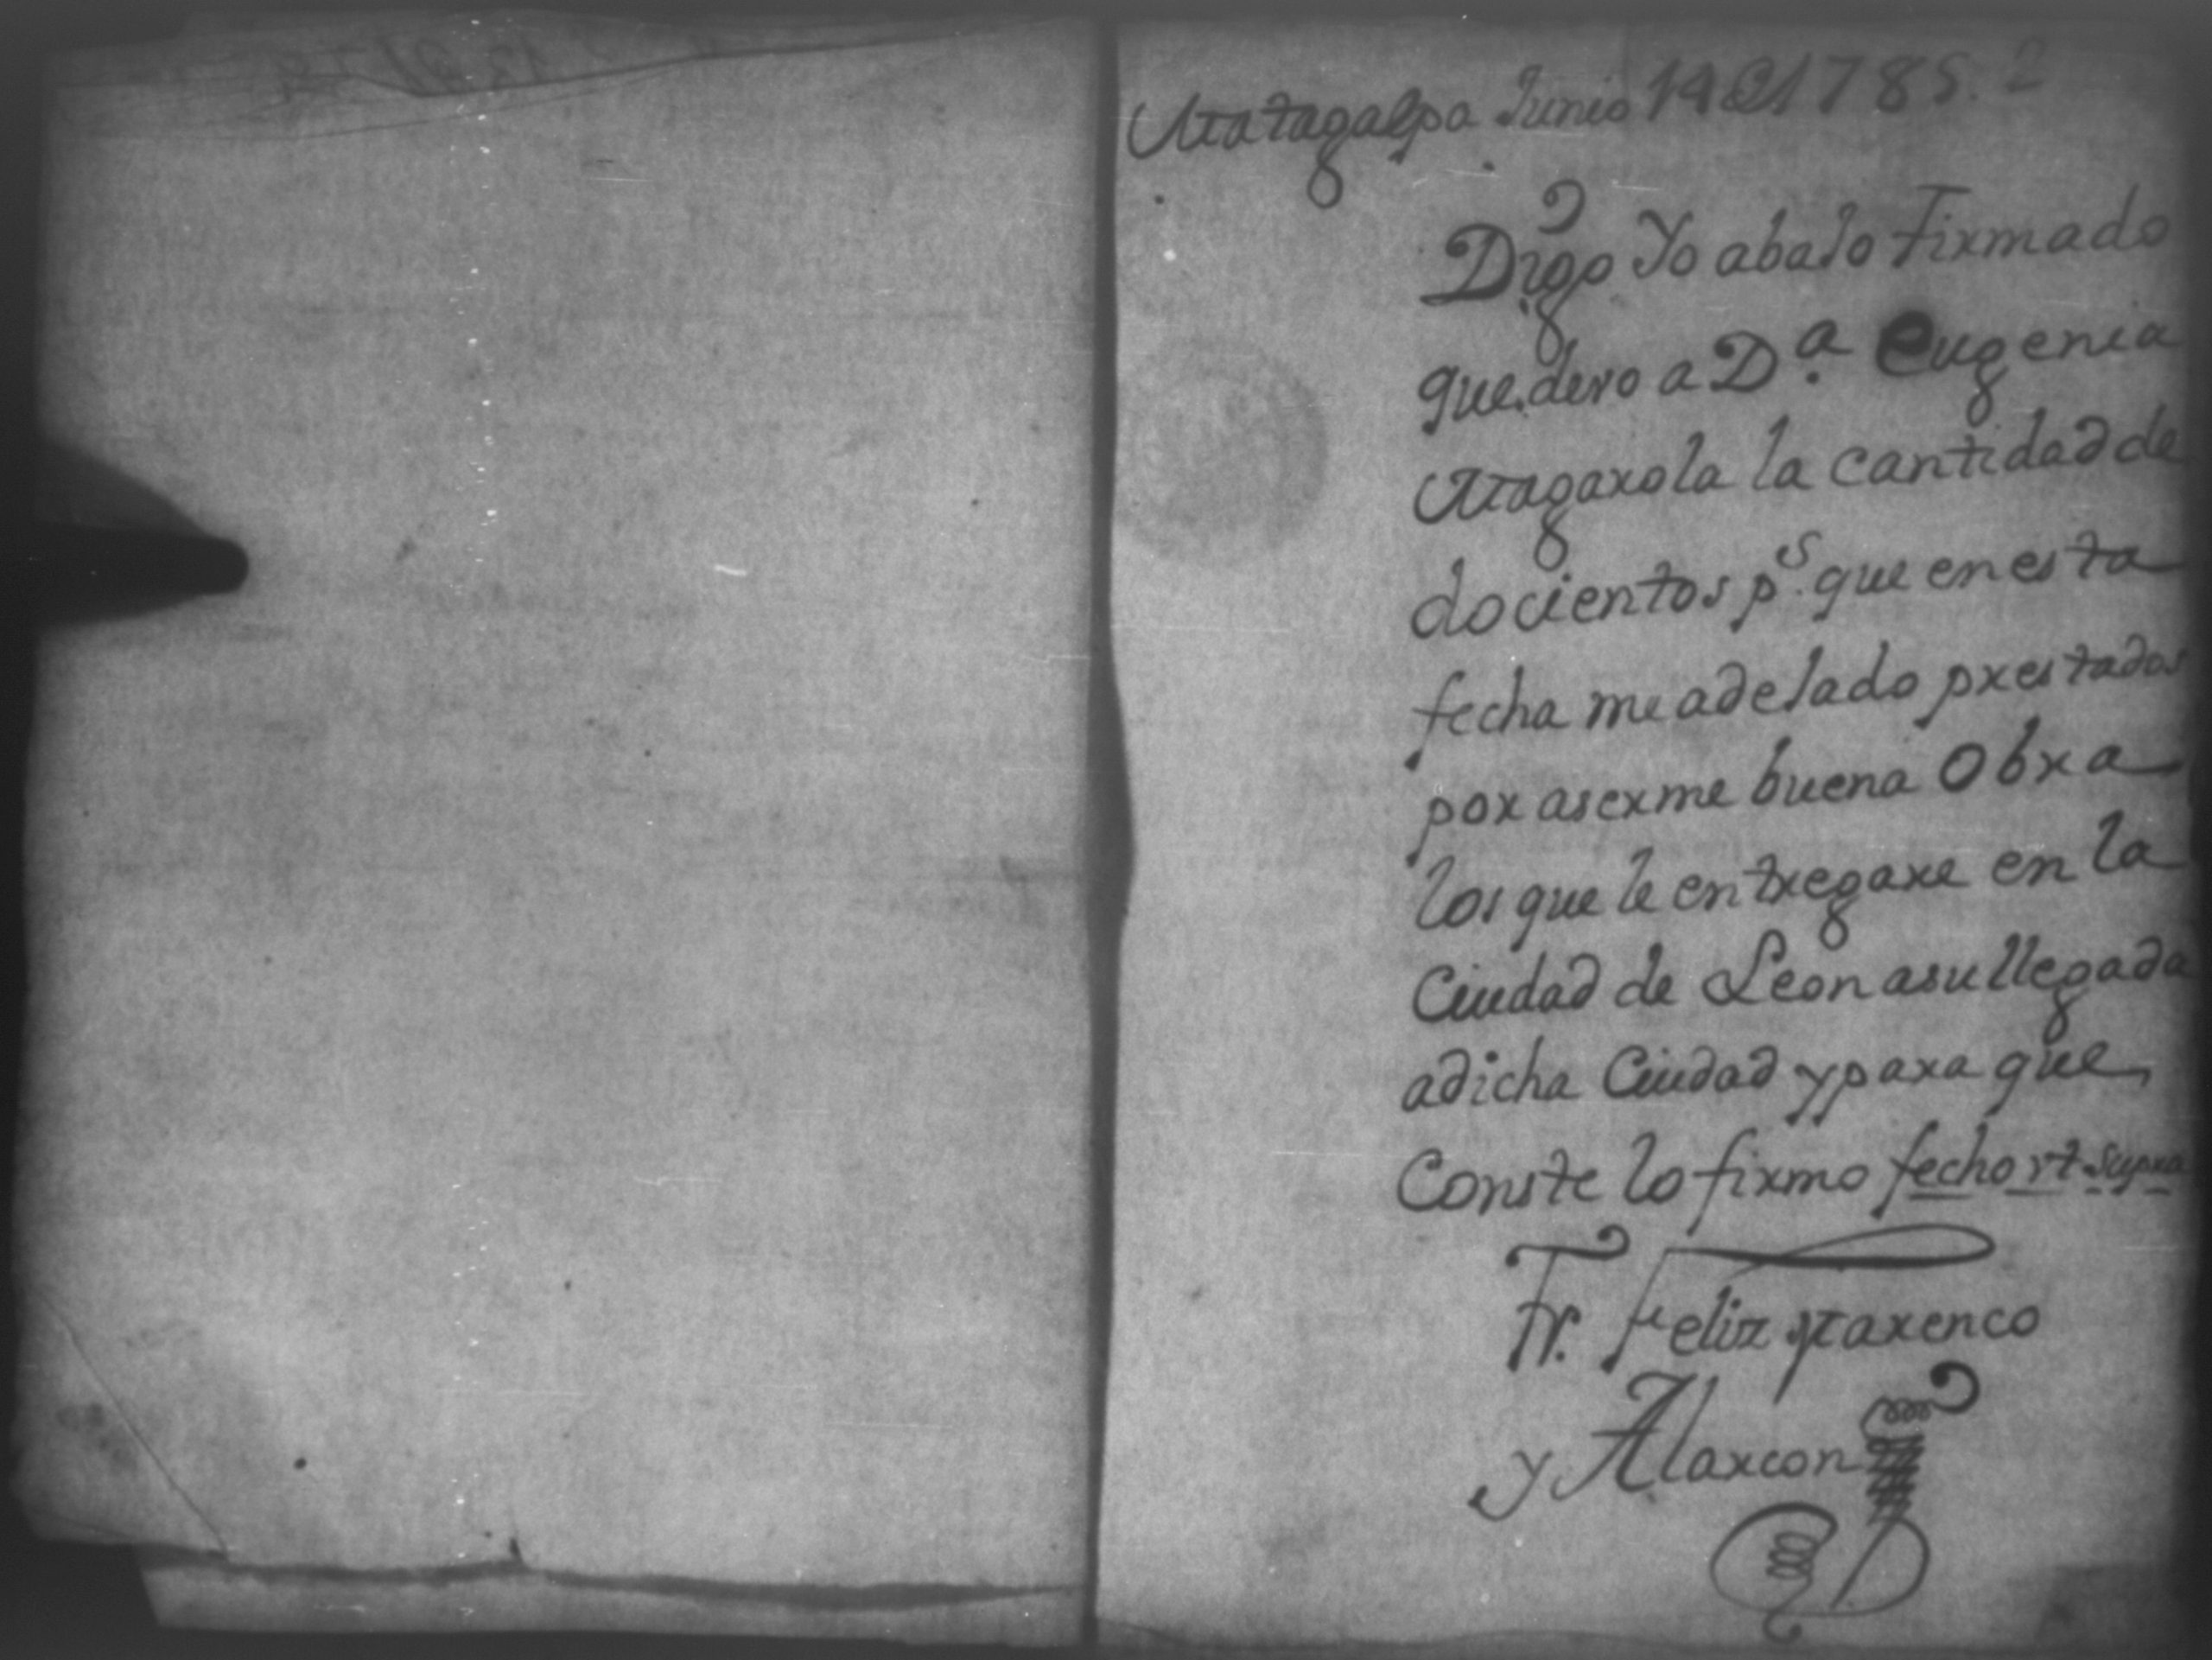 Matagalpa Junio 14 de 1785. 2
Digo Yo abaJo Firmado
que devo a D.ª Eugenia
Magarola la cantidad de
docientos p.s que en esta
fecha me a delado prestados
por aserme buena Obra
los que le entregare en la
Ciudad de Leon a su llegada
a dicha Ciudad y para que
Conste lo firmo fecho vt supra
Fr. Felix Marenco
y Alarcon